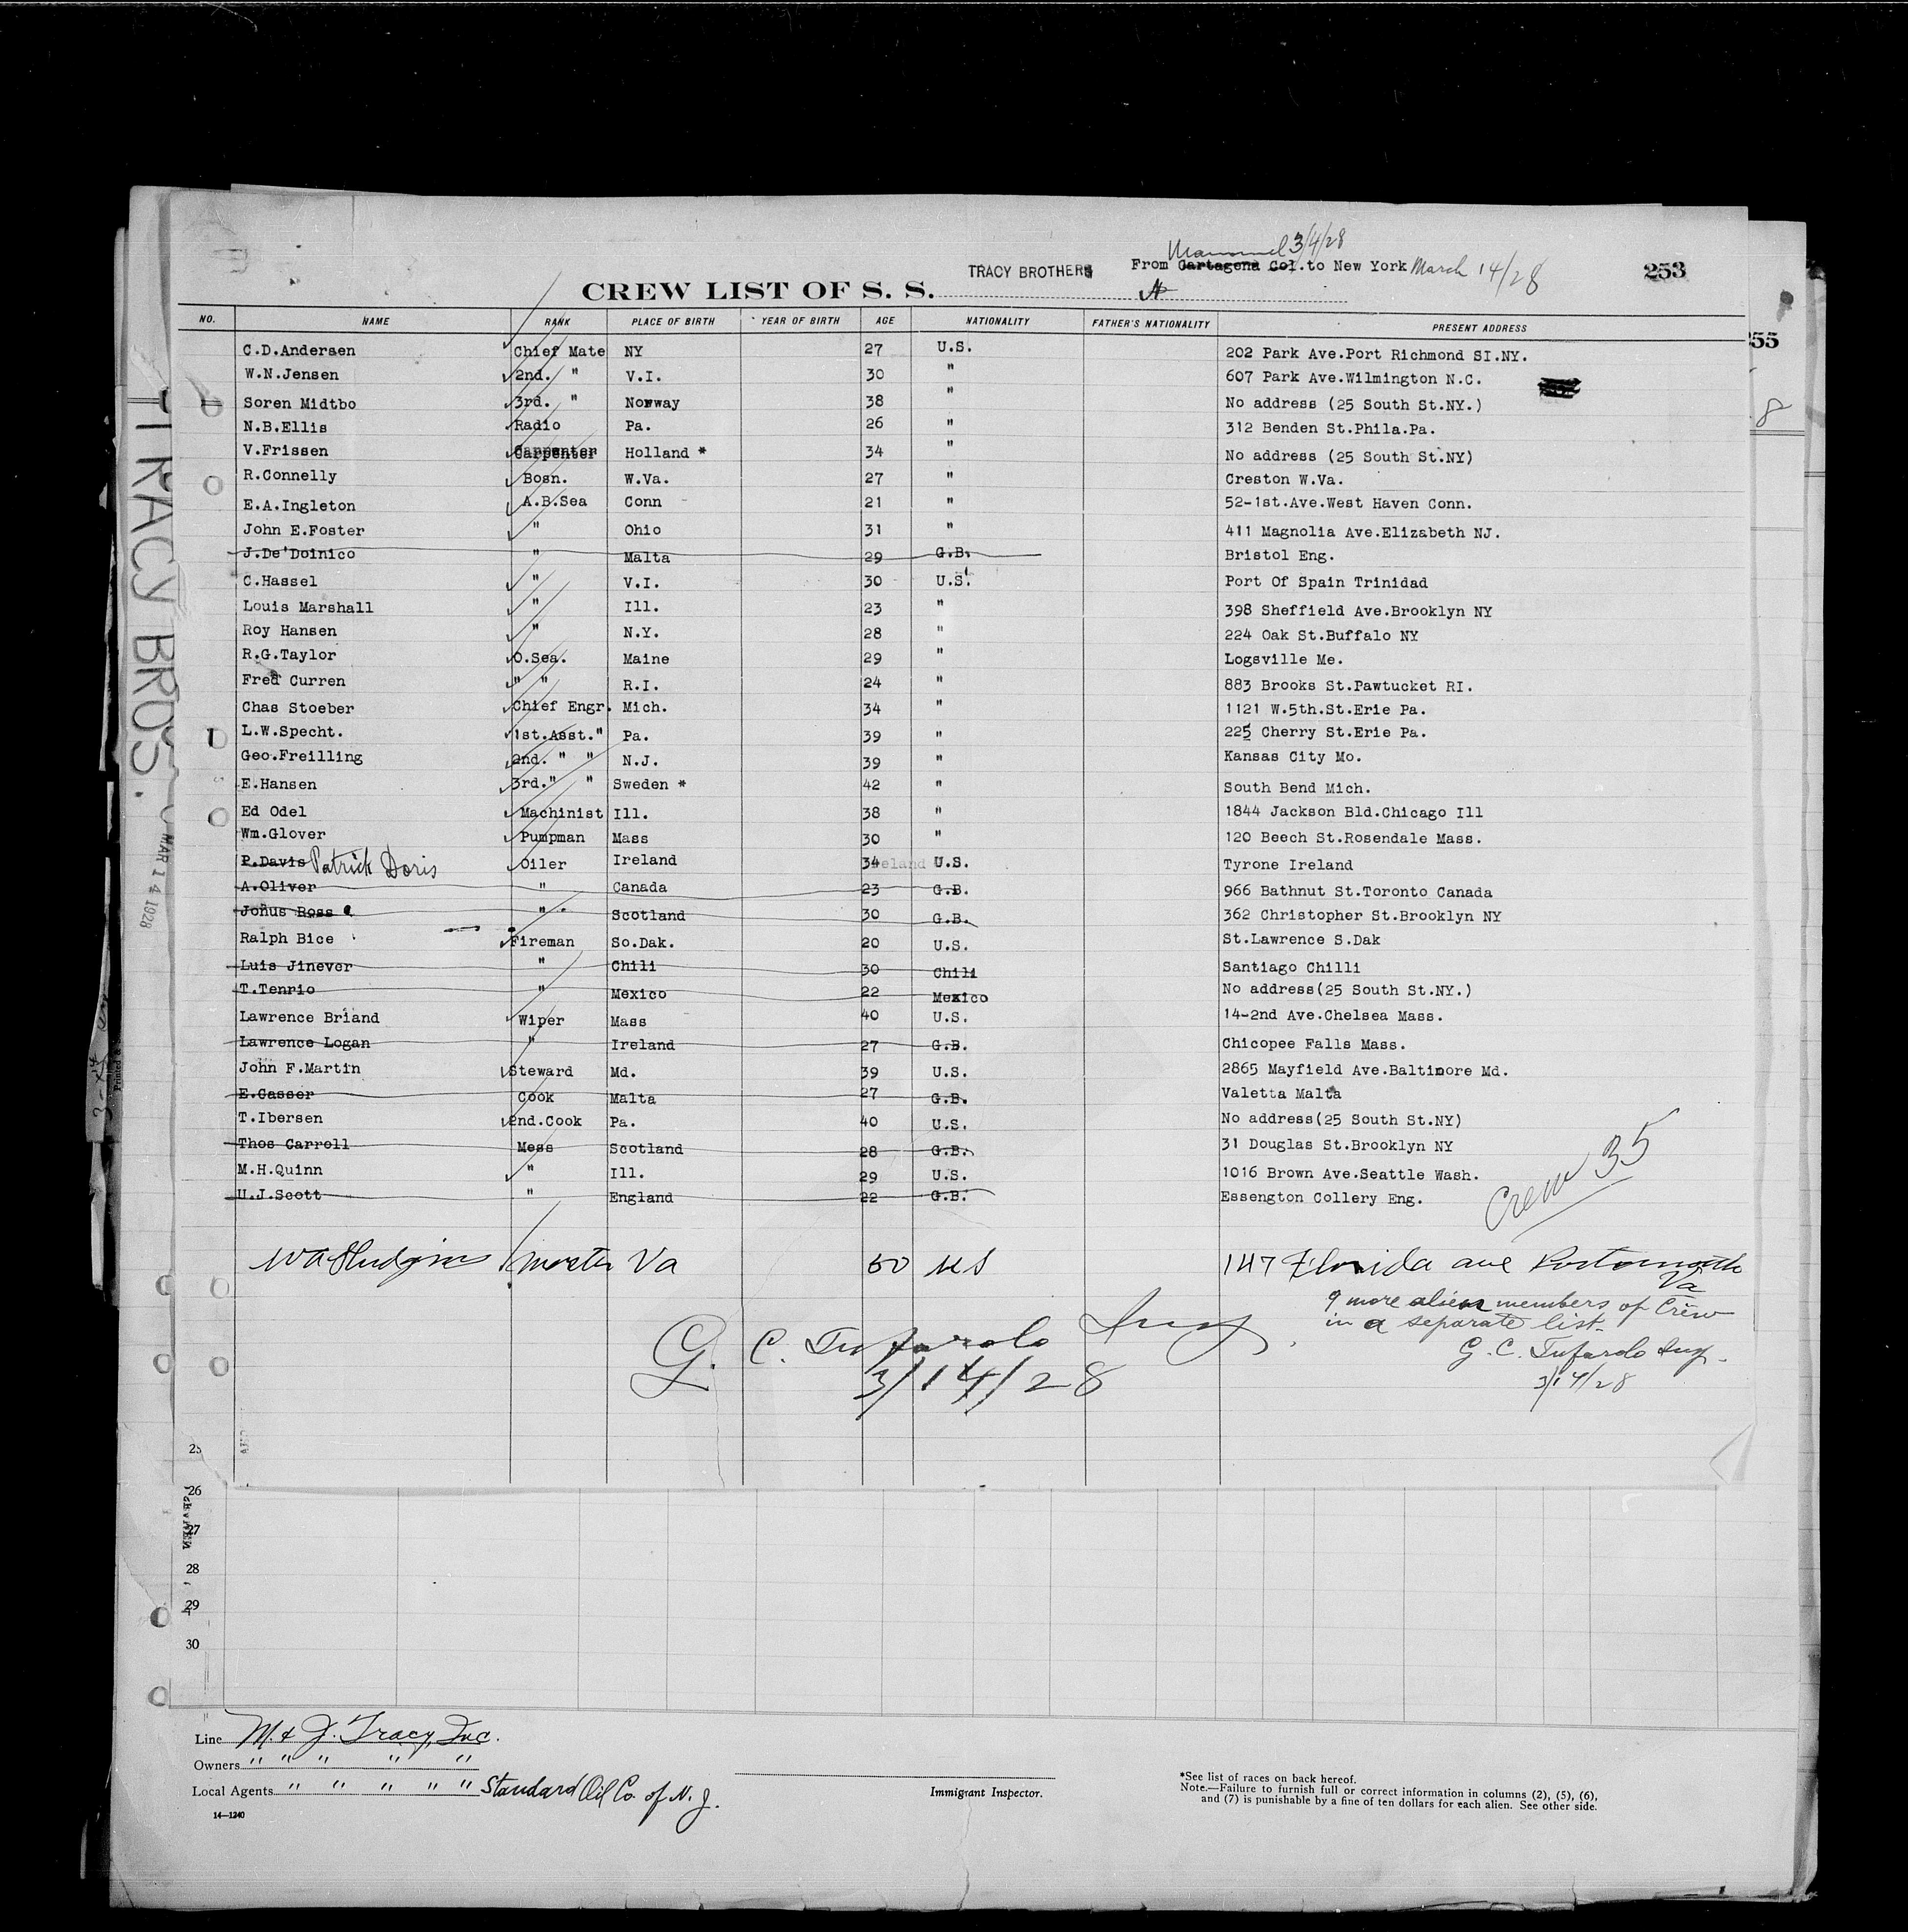 3/4/28
TRACY BROTHERS From Cartagena Col. to New York March 14/28 253
CREW LIST OF S. S.
NO. NAME RANK PLACE OF BIRTH YEAR OF BIRTH AGE NATIONALITY FATHER'S NATIONALITY PRESENT ADDRESS
255
C.D.Andersen Chief Mate NY 27 U.S. 202 Park Ave.Port Richmond SI.NY.
W.N.Jensen 2nd. " V.I. 30 " 607 Park Ave.Wilmington N.C.
Soren Midtbo 3rd. " Norway 38 " No address (25 South St.NY.)
8
N.B.Ellis Radio Pa. 26 " 312 Benden St.Phila.Pa.
V.Frissen Carpenter Holland * 34 " No address (25 South St.NY)
R.Connelly Bosn. W.Va. 27 " Creston W.Va.
E.A.Ingleton A.B.Sea Conn 21 " 52-1st.Ave.West Haven Conn.
John E.Foster " Ohio 31 " 411 Magnolia Ave.Elizabeth NJ.
J.De'Doinico " Malta 29 G.B. Bristol Eng.
C.Hassel " V.I. 30 U.S. Port Of Spain Trinidad
Louis Marshall " Ill. 23 " 398 Sheffield Ave.Brooklyn NY
Roy Hansen " N.Y. 28 " 224 Oak St.Buffalo NY
R.G.Taylor O.Sea. Maine 29 " Logsville Me.
Fred Curren " " R.I. 24 " 883 Brooks St.Pawtucket RI.
Chas Stoeber Chief Engr. Mich. 34 " 1121 W.5th.St.Erie Pa.
L.W.Specht. 1st.Asst." Pa. 39 " 225 Cherry St.Erie Pa.
Geo.Freilling 2nd. " " N.J. 39 " Kansas City Mo.
E.Hansen 3rd." " Sweden * 42 " South Bend Mich.
Ed Odel Machinist Ill. 38 " 1844 Jackson Bld.Chicago Ill
Wm.Glover Pumpman Mass 30 " 120 Beech St.Rosendale Mass.
P.Davis Patrick Doris Oiler Ireland 34 U.S. Tyrone Ireland
A.Oliver " Canada 23 G.B. 966 Bathnut St.Toronto Canada
Johus Ross " Scotland 30 G.B. 362 Christopher St.Brooklyn NY
Ralph Bice Fireman So.Dak. 20 U.S. St.Lawrence S.Dak
Luis Jinever " Chili 30 Chili Santiago Chilli
T.Tenrio " Mexico 22 Mexico No address(25 South St.NY.)
Lawrence Briand Wiper Mass 40 U.S. 14-2nd Ave.Chelsea Mass.
Lawrence Logan " Ireland 27 G.B. Chicopee Falls Mass.
John F.Martin Steward Md. 39 U.S. 2865 Mayfield Ave.Baltimore Md.
E.Casser Cook Malta 27 G.B. Valetta Malta
T.Ibersen 2nd.Cook Pa. 40 U.S. No address(25 South St.NY)
Thos Carrell Mess Scotland 28 G.B. 31 Douglas St.Brooklyn NY
M.H.Quinn " Ill. 29 U.S. 1016 Brown Ave.Seattle Wash.
U.J.Scott " England 22 G.B. Essengton Collery Eng.
Crew 35
W A Hudgins master Va 50 US 147 Florida ave Portsmouth
Va
9 more alien members of Crew
in a separate list.
G. C. Tufarolo Insp.
3/14/28
G. C. Tufarolo Insp.
3/14/28
TRACY BROS.
MAR 14 1928
25
26
27
28
29
30
Line M. & J. Tracy, Inc.
Owners " " " " "
Local Agents " " " " " Standard Oil Co. of N. J.
14—1240
Immigrant Inspector.
*See list of races on back hereof.
Note.—Failure to furnish full or correct information in columns (2), (5), (6),
and (7) is punishable by a fine of ten dollars for each alien. See other side.